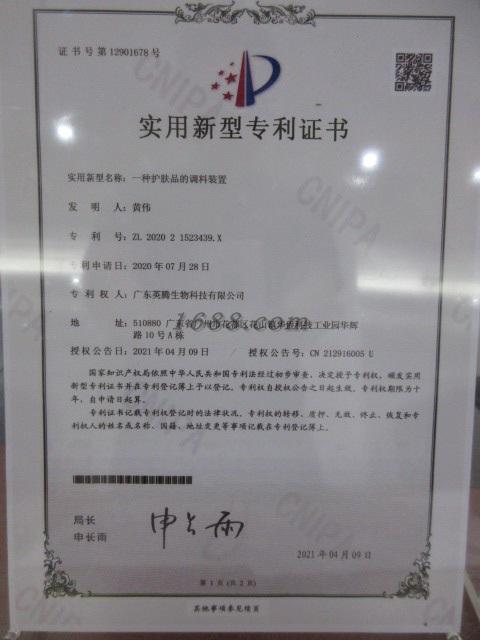 证书号第12901678号
实用新型专利证书
实用新型名称：一种护肤品的调料装置
发明人：黄伟
专利号：ZL 2020 2 1523439.X
专利申请日：2020年07月28日
专利权人：广东英腾生物科技有限公司
地址：510880 广东省广州市花都区花山镇华侨科技工业园华辉
路10号A栋
1688.com
授权公告日：2021年04月09日 授权公告号：CN 212916005 U
国家知识产权局依照中华人民共和国专利法经过初步审查，决定授予专利权，颁发实用
新型专利证书并在专利登记簿上予以登记。专利权自授权公告之日起生效。专利权期限为十
年，自申请日起算。
专利证书记载专利权登记时的法律状况。专利权的转移、质押、无效、终止、恢复和专利
权人的姓名或名称、国籍、地址变更等事项记载在专利登记簿上。
局长
申长雨
申长雨
2021年04月09日
第1页(共2页)
其他事项参见续页
CNIPA
CNIPA
CNIPA
CNIPA
CNIPA